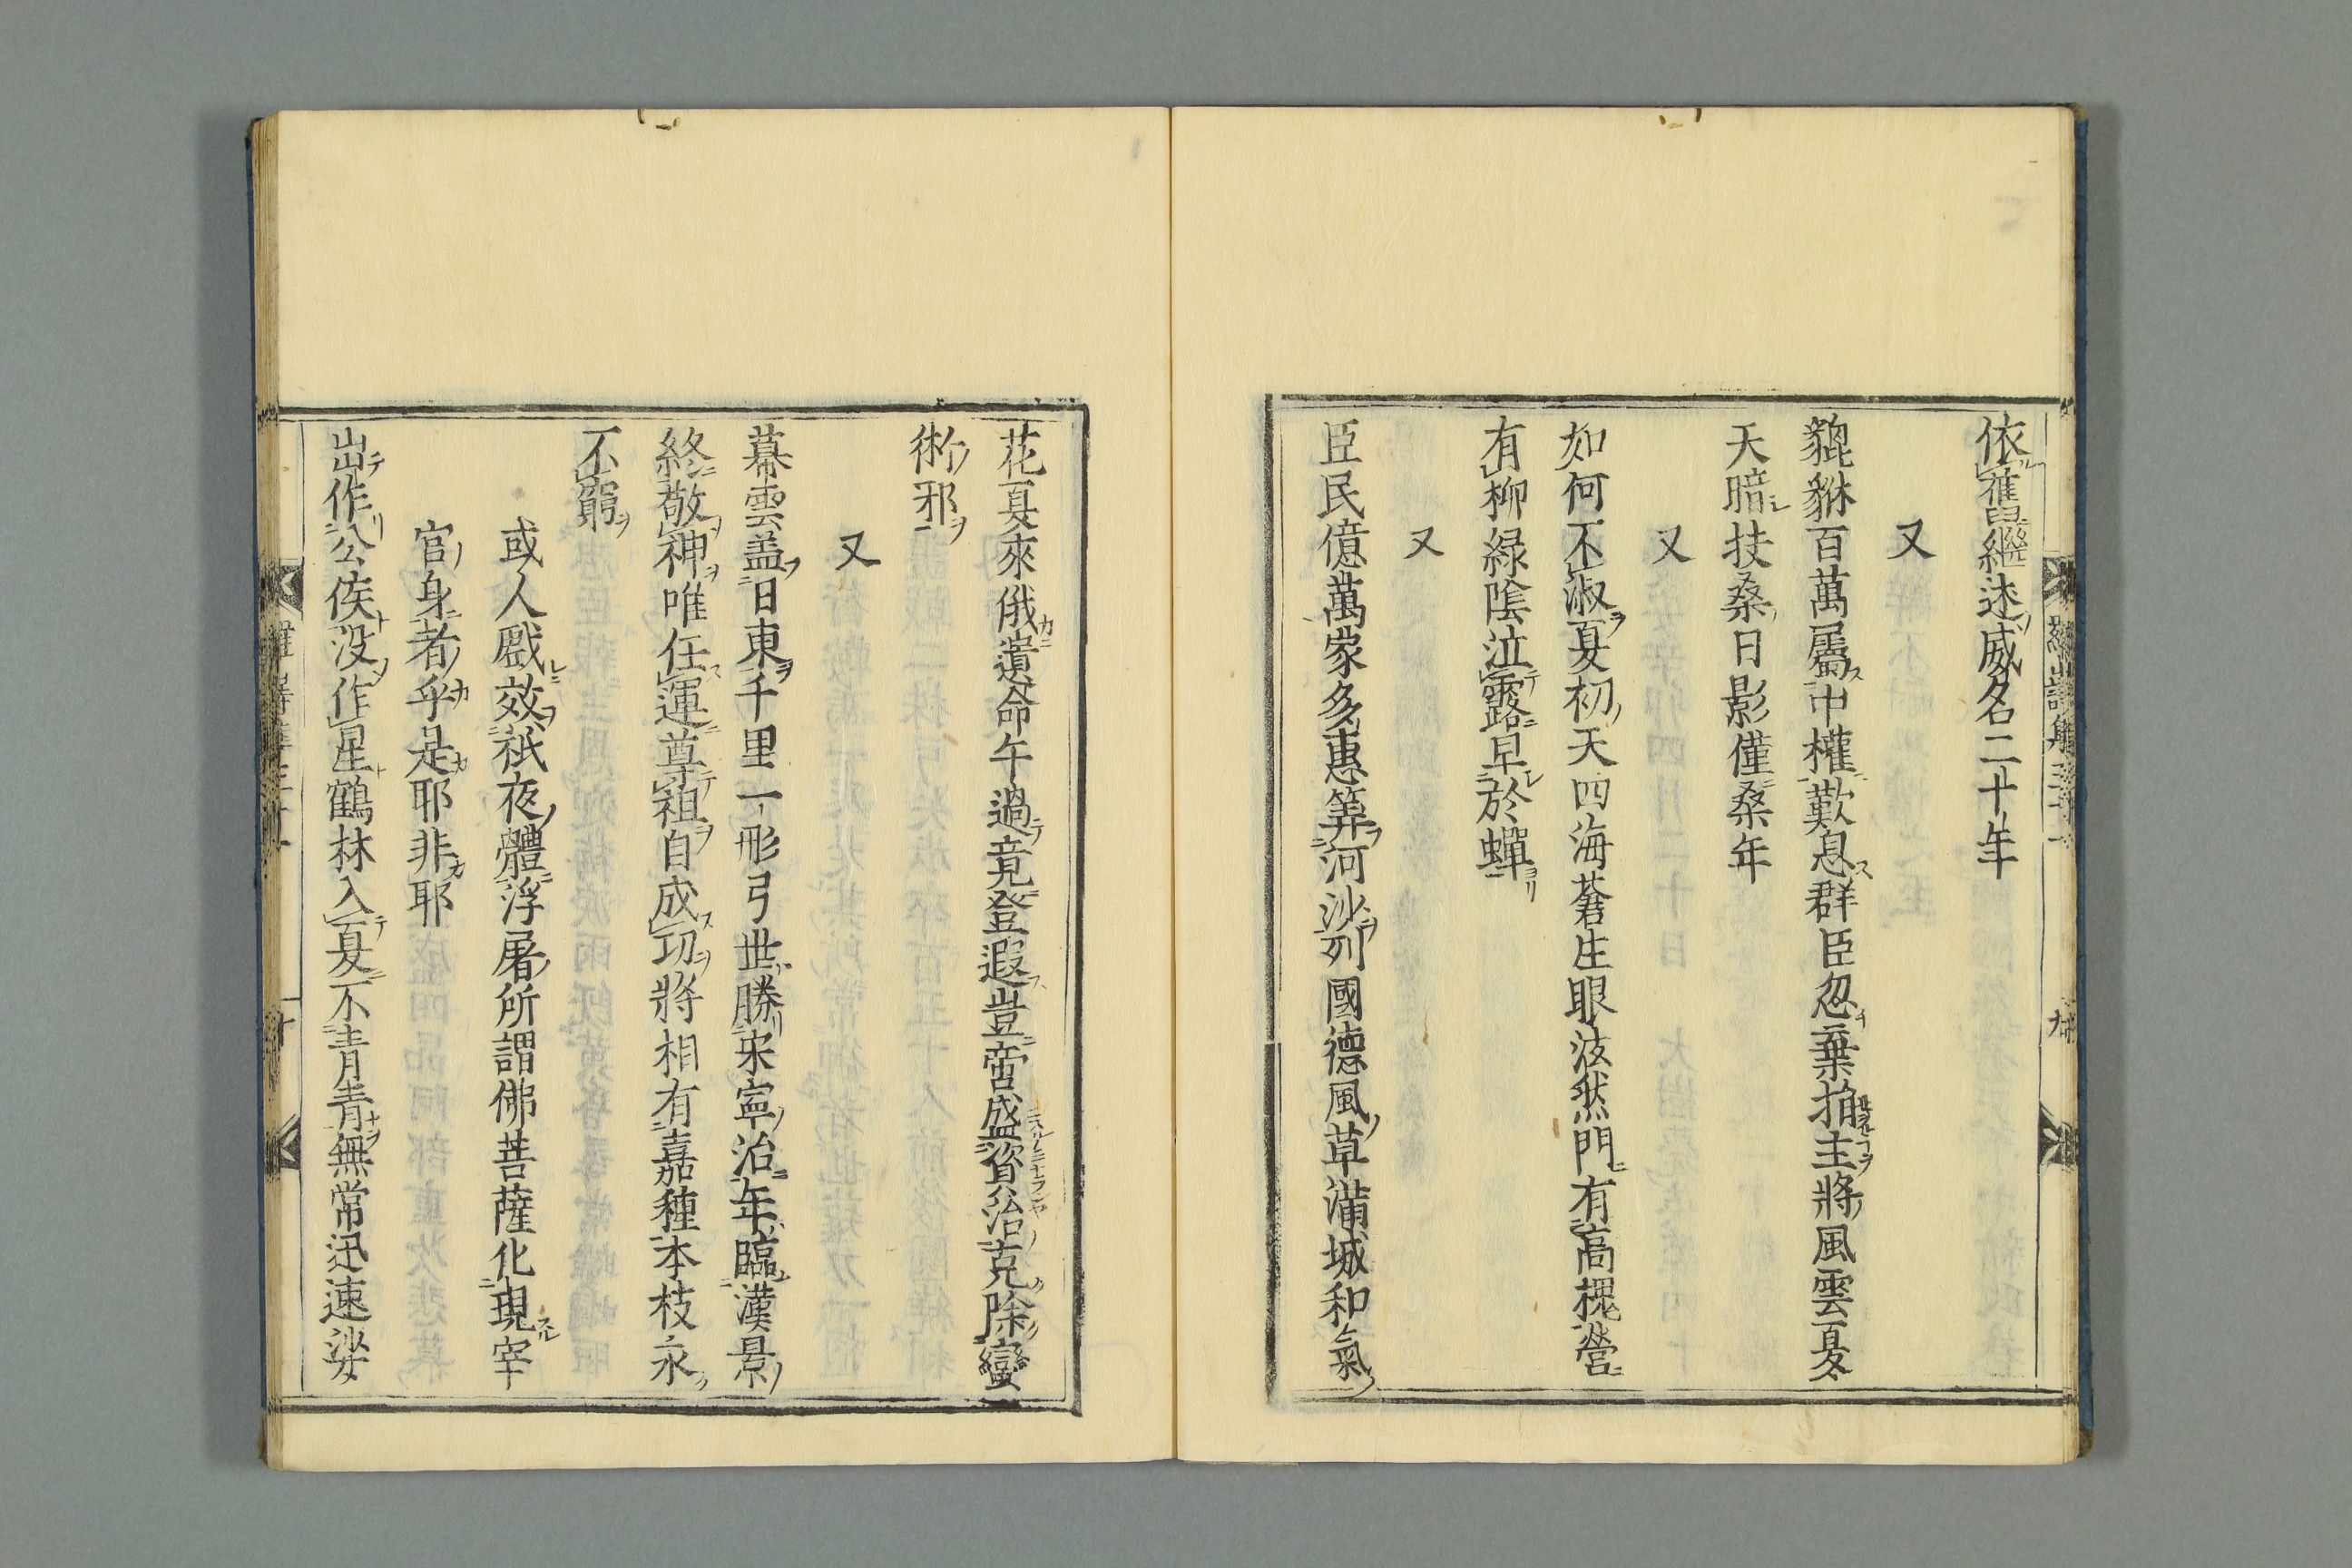 又
貔貅百萬屬中權歎息群臣忽棄捐主將風雲夏
天暗扶桑日影僅桑年
又
如何不淑夏初天四海蒼生眼泫然門有高槐營
有柳綠陰泣露早於蟬
又
臣民億萬家多惠筭河沙列國德風草滿城和氣
花夏來俄遺命午過竟登遐豈啻盛資治克除蠻
術邪
又
幕雲盖日東千里一形弓世勝宋寧治年臨漢景
終敬神唯任運尊祖自成功將相有嘉種本枝永
不窮
或人戲效祇夜體浮屠所謂佛菩薩化現宰
官身者乎是耶非耶
出作公侯沒作星鶴林入夏不青青無常迅速娑